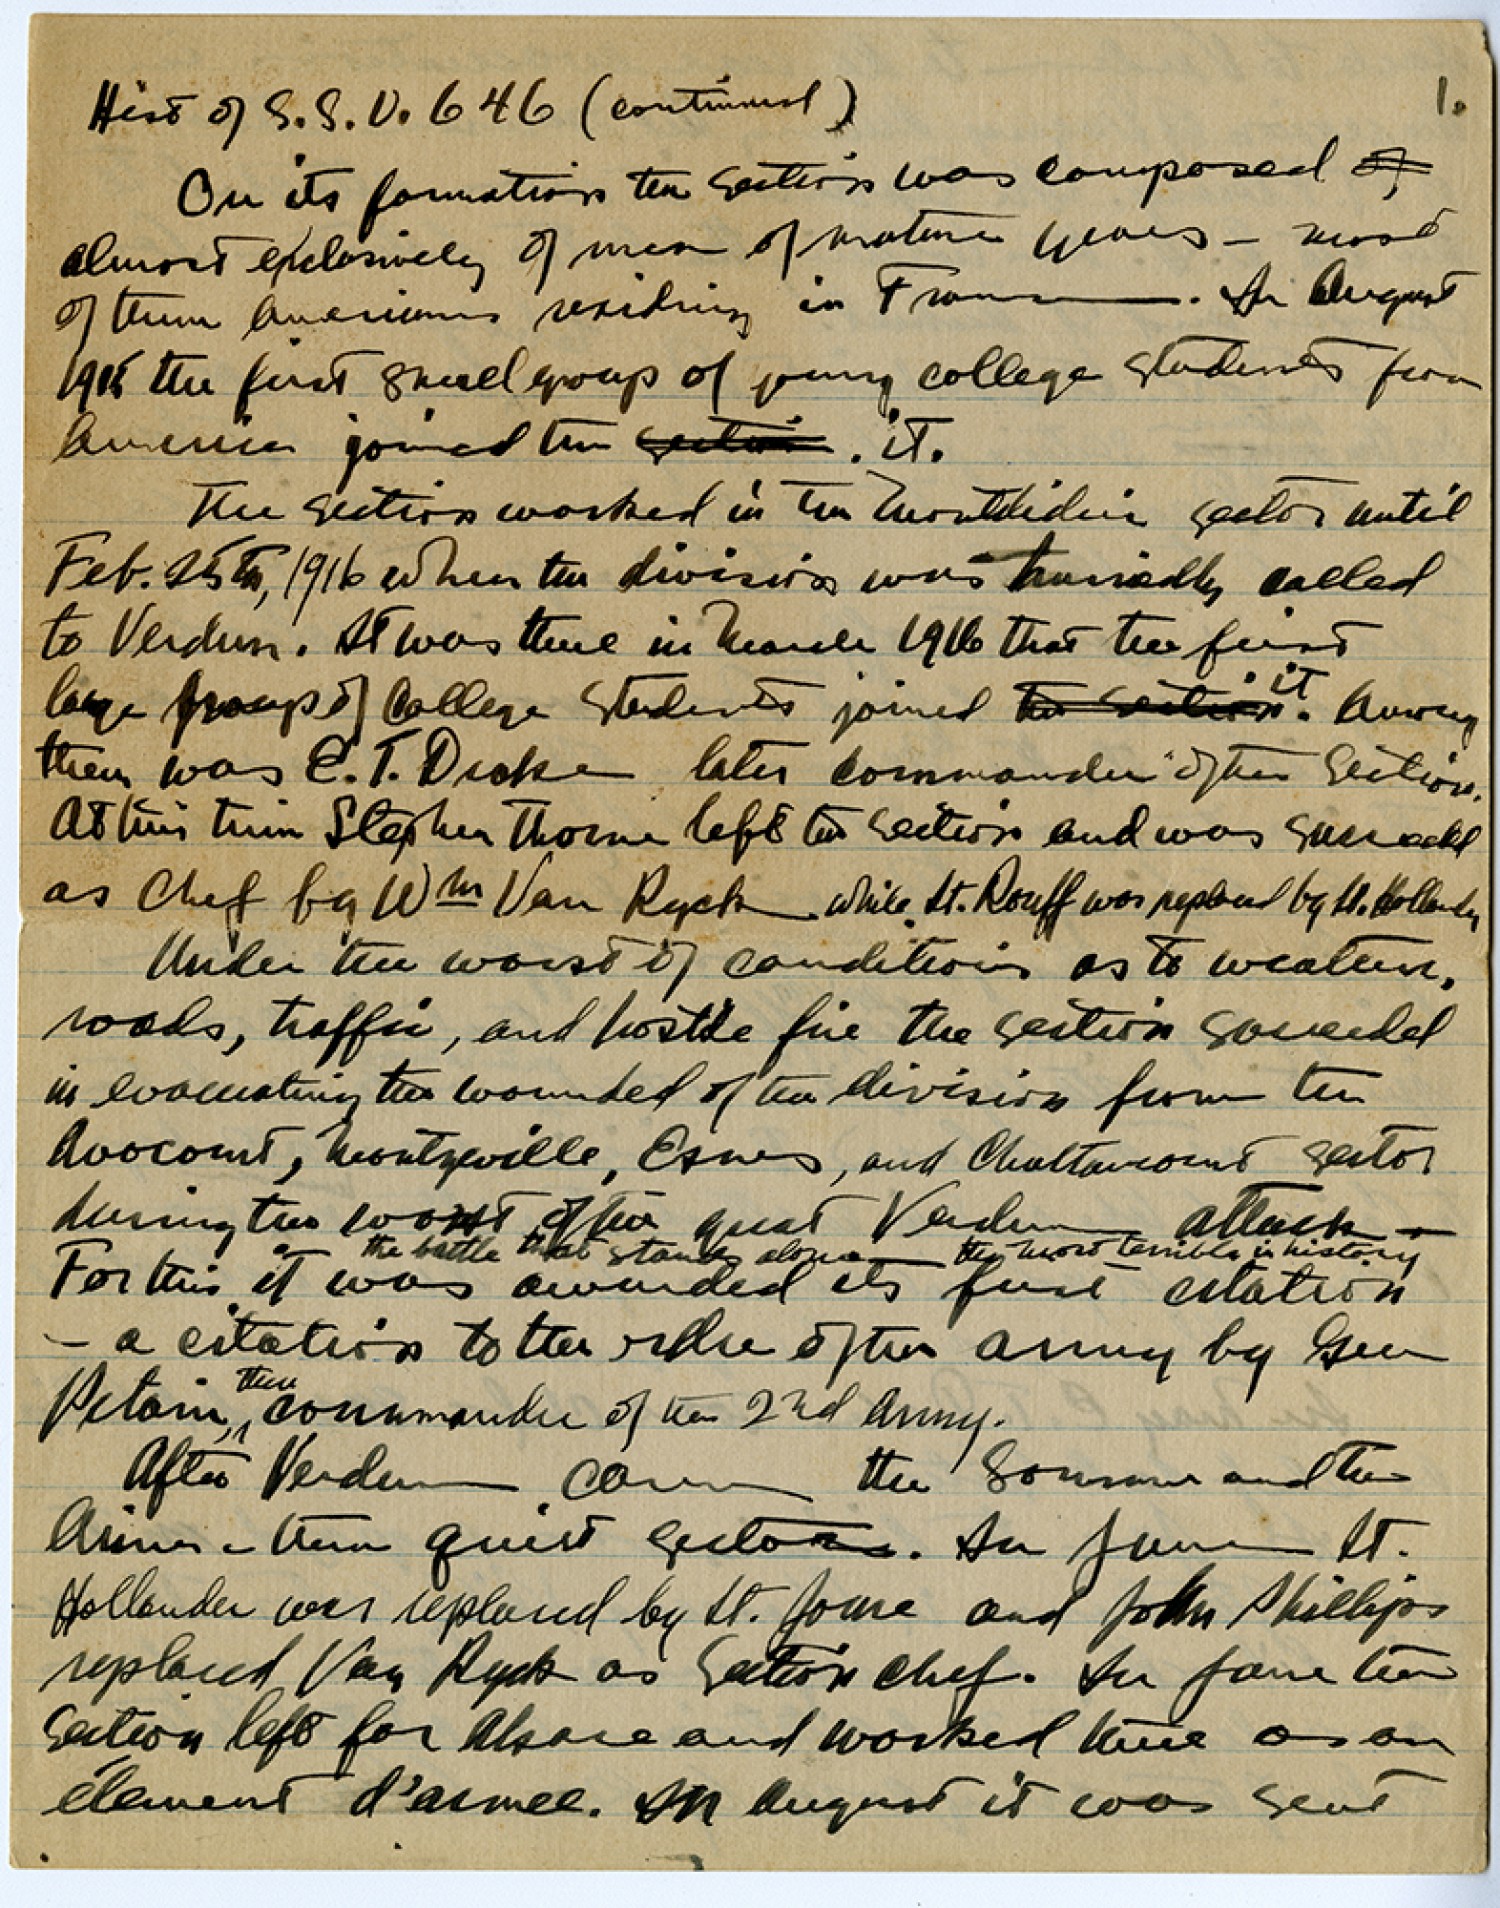 Hist of S.S.U. 646 (continued) 1.
On its formation the section was composed of
almost exclusively of men of mature years – most
of them Americans residing in France. In August
1915 the first small group of young college students from
America joined the section. it.
The section worked in the Montdidier sector until
Feb. 25th, 1916 when the division was hurriedly called
to Verdun. It was there in March 1916 that the first
large group of college students joined the section. it Among
them was E.T. Drake later commander of the section.
At this time Stephen Thorne left the section and was succeeded
as Chef by Wm Van Ryck while Lt. Rouff was replaced by Lt. Hollander
Under the worst of conditions as to weather,
roads, traffic, and hostile fire the section succeeded
in evacuating the wounded of the division from the
Avocourt, Montzeville, Esnes, and Chattancourt sector
during the worst of the great Verdun attack –
the battle that stands alone the most terrible in history
For this it was awarded its first citation
– a citation to the order of the army by Gen
Petain, then commander of the 2nd Army.
After Verdun came the Somme and the
Aisne – then quiet sectors. In June Lt.
Hollander was replaced by Lt. Jouve and John Phillips
replaced Van Ryck as Section chef. In June the
section left for Alsace and worked there as an
élement d'armee. In August it was sent